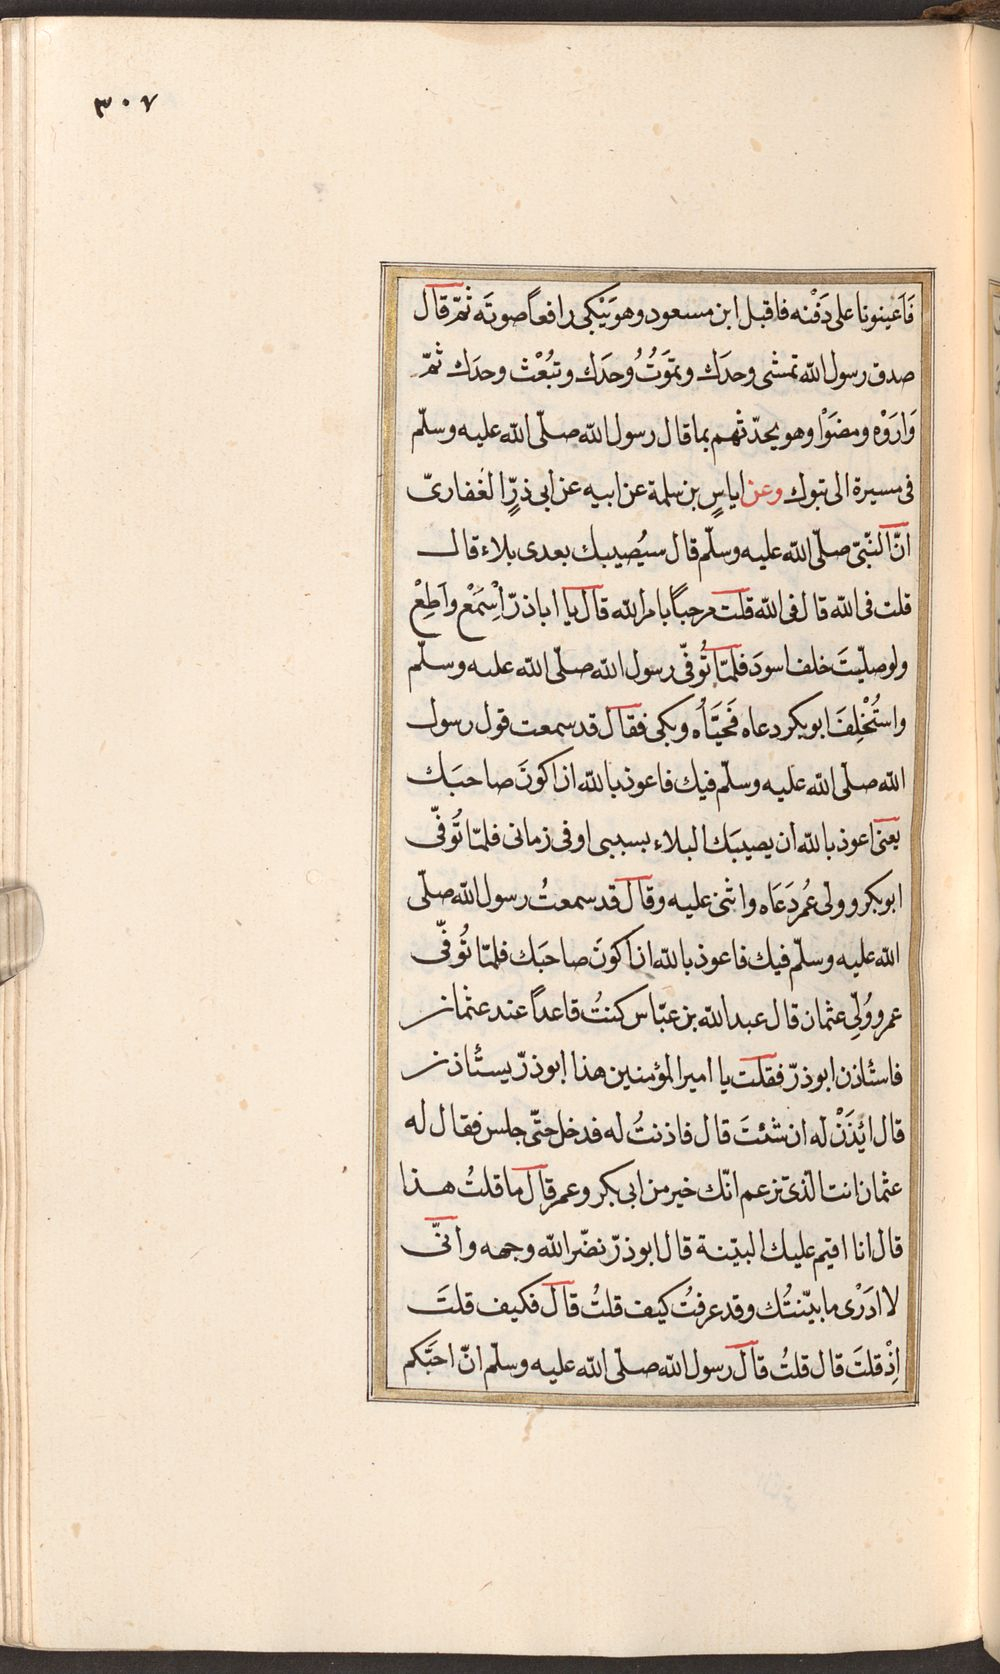 ٣٠٧
فَاَعينونا على دَفْنه فاقبل ابن مسعود وهو يَبْكى رافعاً صوتَه ثمّ قال
صدق رسول الله تمشى وحدَك وتموَتُ وُحدَك وتُبْعْث وحدَك ثمّ
وَارَوْه ومضَوْا وهو يحدّثهم بما قال رسول الله صلّى الله عليه وسلّم
فى مسيرة الى تبوك وعن اياسٍ بن سلمة عن ابيه عن ابى ذرٍّ الغفارىّ
انّ النّبىّ صلّى الله عليه وسلّم قال سيُصيبك بعدى بلاء قال
قلت فى الله قال فى الله قلت مرحباً بامر الله قال يا ابا ذرّ اِسْمَعْ واَطِعْ
ولو صلّيتَ خلف اسودَ فلمّا تُوفّى رسول الله صلّى الله عليه وسلّم
واستُخْلِفَ ابو بكر دعاه فَحَيَّاُه وبكى فقال قد سمعت قول رسول
الله صلّى الله عليه وسلّم فيك فاعوذ بالله ان اكونَ صاحبَك
يعنى اعوذ بالله ان يصيبَك البلاء بسببى او فى زمانى فلمّا تُوفّى
ابو بكر وولى عُمر دَعَاه واثنى عليه وقال قد سمعتُ رسول الله صلّى
الله عليه وسلّم فيك فاعوذ بالله ان اكونَ صاحبَك فلمّا تُوفّى
عمر ووُلّى عثمان قال عبد الله بن عبّاس كنتُ قاعداً عند عثمان
فاستأذن ابو ذرّ فقلت يا امير المؤمنين هذا ابو ذرّ يستأذن
قال ائِذَنْ له ان شئتَ قال فاذنتُ له فدخل حتّى جلس فقال له
عثمان انت الّذى تزعم انّك خير من ابى بكر وعمر قال ما قلتُ هذا
قال انا اقيم عليك البيّنة قال ابو ذرّ نضّر الله وجهه وانّى
لا ادَرْى ما بيّنتُك وقد عرفتُ كيف قلتُ قال فكيف قلتَ
اِذْ قلتَ قال قلتُ قال رسول الله صلّى الله عليه وسلّم انّ احبَّكم